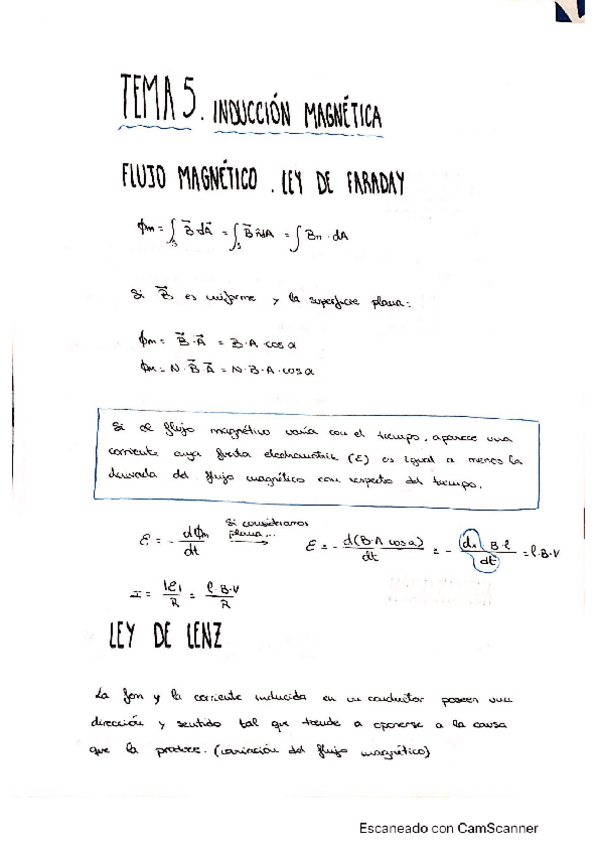 TEMA 5. INDUCCIÓN MAGNÉTICA
FLUJO MAGNÉTICO. LEY DE FARADAY
ϕm = ∫s B⃗ dA⃗ = ∫s B⃗ n̂ dA = ∫ Bn · dA
Si B⃗ es uniforme y la superficie plana:
ϕm = B⃗ · A⃗ = B·A·cos α
ϕm = N · B⃗ A⃗ = N·B·A·cos α
Si el flujo magnético varía con el tiempo, aparece una
corriente cuya fuerza electromotriz (ε) es igual a menos la
derivada del flujo magnético con respecto del tiempo.
ε = - dϕm/dt Si consideramos plana... → ε = - d(B·A cos α)/dt = - dx B·l/dt = l·B·V
I = |ε|/R = l·B·V/R
LEY DE LENZ
La fem y la corriente inducida en un conductor poseen una
dirección y sentido tal que tiende a oponerse a la causa
que la produce. (variación del flujo magnético)
Escaneado con CamScanner